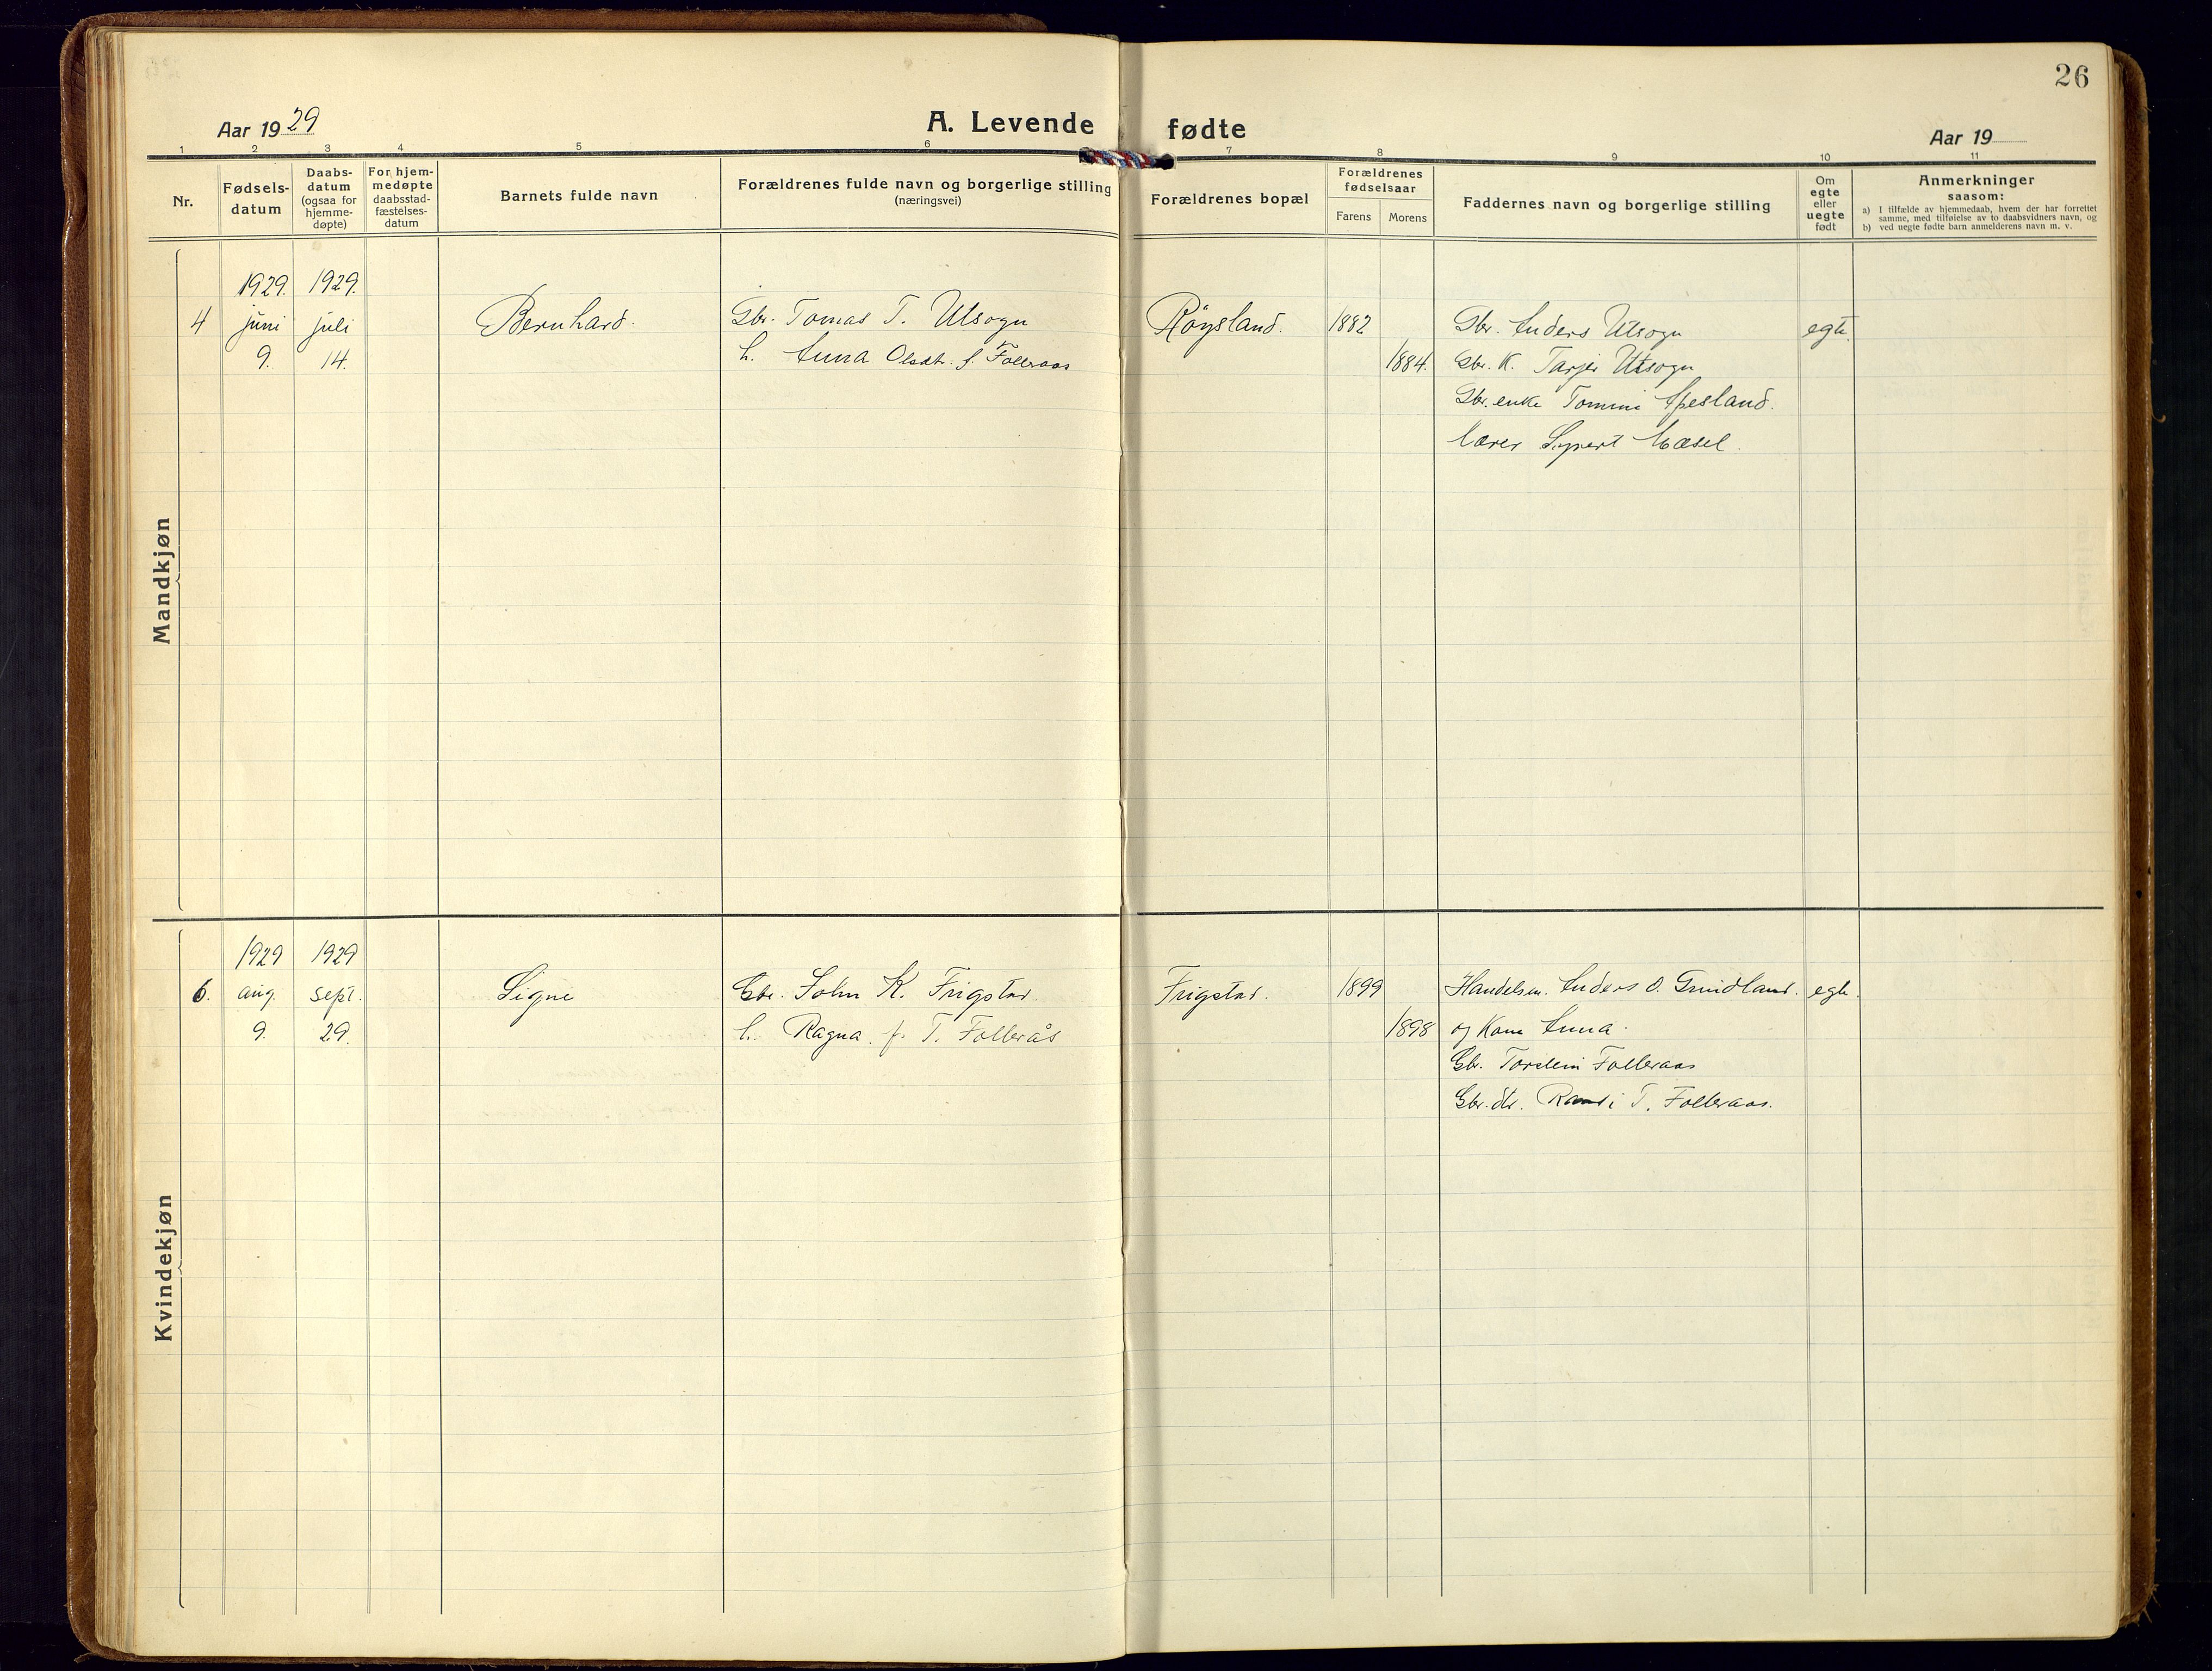 26
Aar 1929
A. Levende fødte
Aar 19
1 2 3 4 5 6 7 8 9 10 11
Nr.
Fødsels-
datum
Daabs-
datum
(ogsaa for
hjemme-
døpte)
For hjem-
medøpte
daabsstad-
fæstelses-
datum
Barnets fulde navn
Forældrenes fulde navn og borgerlige stilling
(næringsvei)
Forældrenes bopæl
Forældrenes
fødselsaar
Farens Morens
Faddernes navn og borgerlige stilling
Om
egte
eller
uegte
født
Anmerkninger
saasom:
a) I tilfælde av hjemmedaab, hvem der har forrettet
samme, med tilføielse av to daabsvidners navn, og
b) ved uegte fødte barn anmelderens navn m. v.
Mandkjøn
1929. 1929.
4 juni juli Bernhard. Gbr. Tomas T. Utsogn Röysland. 1882 Gbr. Anders Utsogn egte.
9. 14. h. Anna Olsdtr. f. Folleraas 1884. Gbr. K. Tarjei Utsogn
Gbr. enke Tomine Apesland.
Lærer Sigvert Mæsel.
Kvindekjøn
1929 1929
6. aug. sept. Signe Gbr. John K. Frigstad Frigstad. 1899 Handelsm. Anders O. Grundland. egte.
9. 29. h. Ragna f. T. Follerås 1898 og Kone Anna.
Gbr. Torstein Folleraas
Gbr. dtr. Randi T. Folleraas.